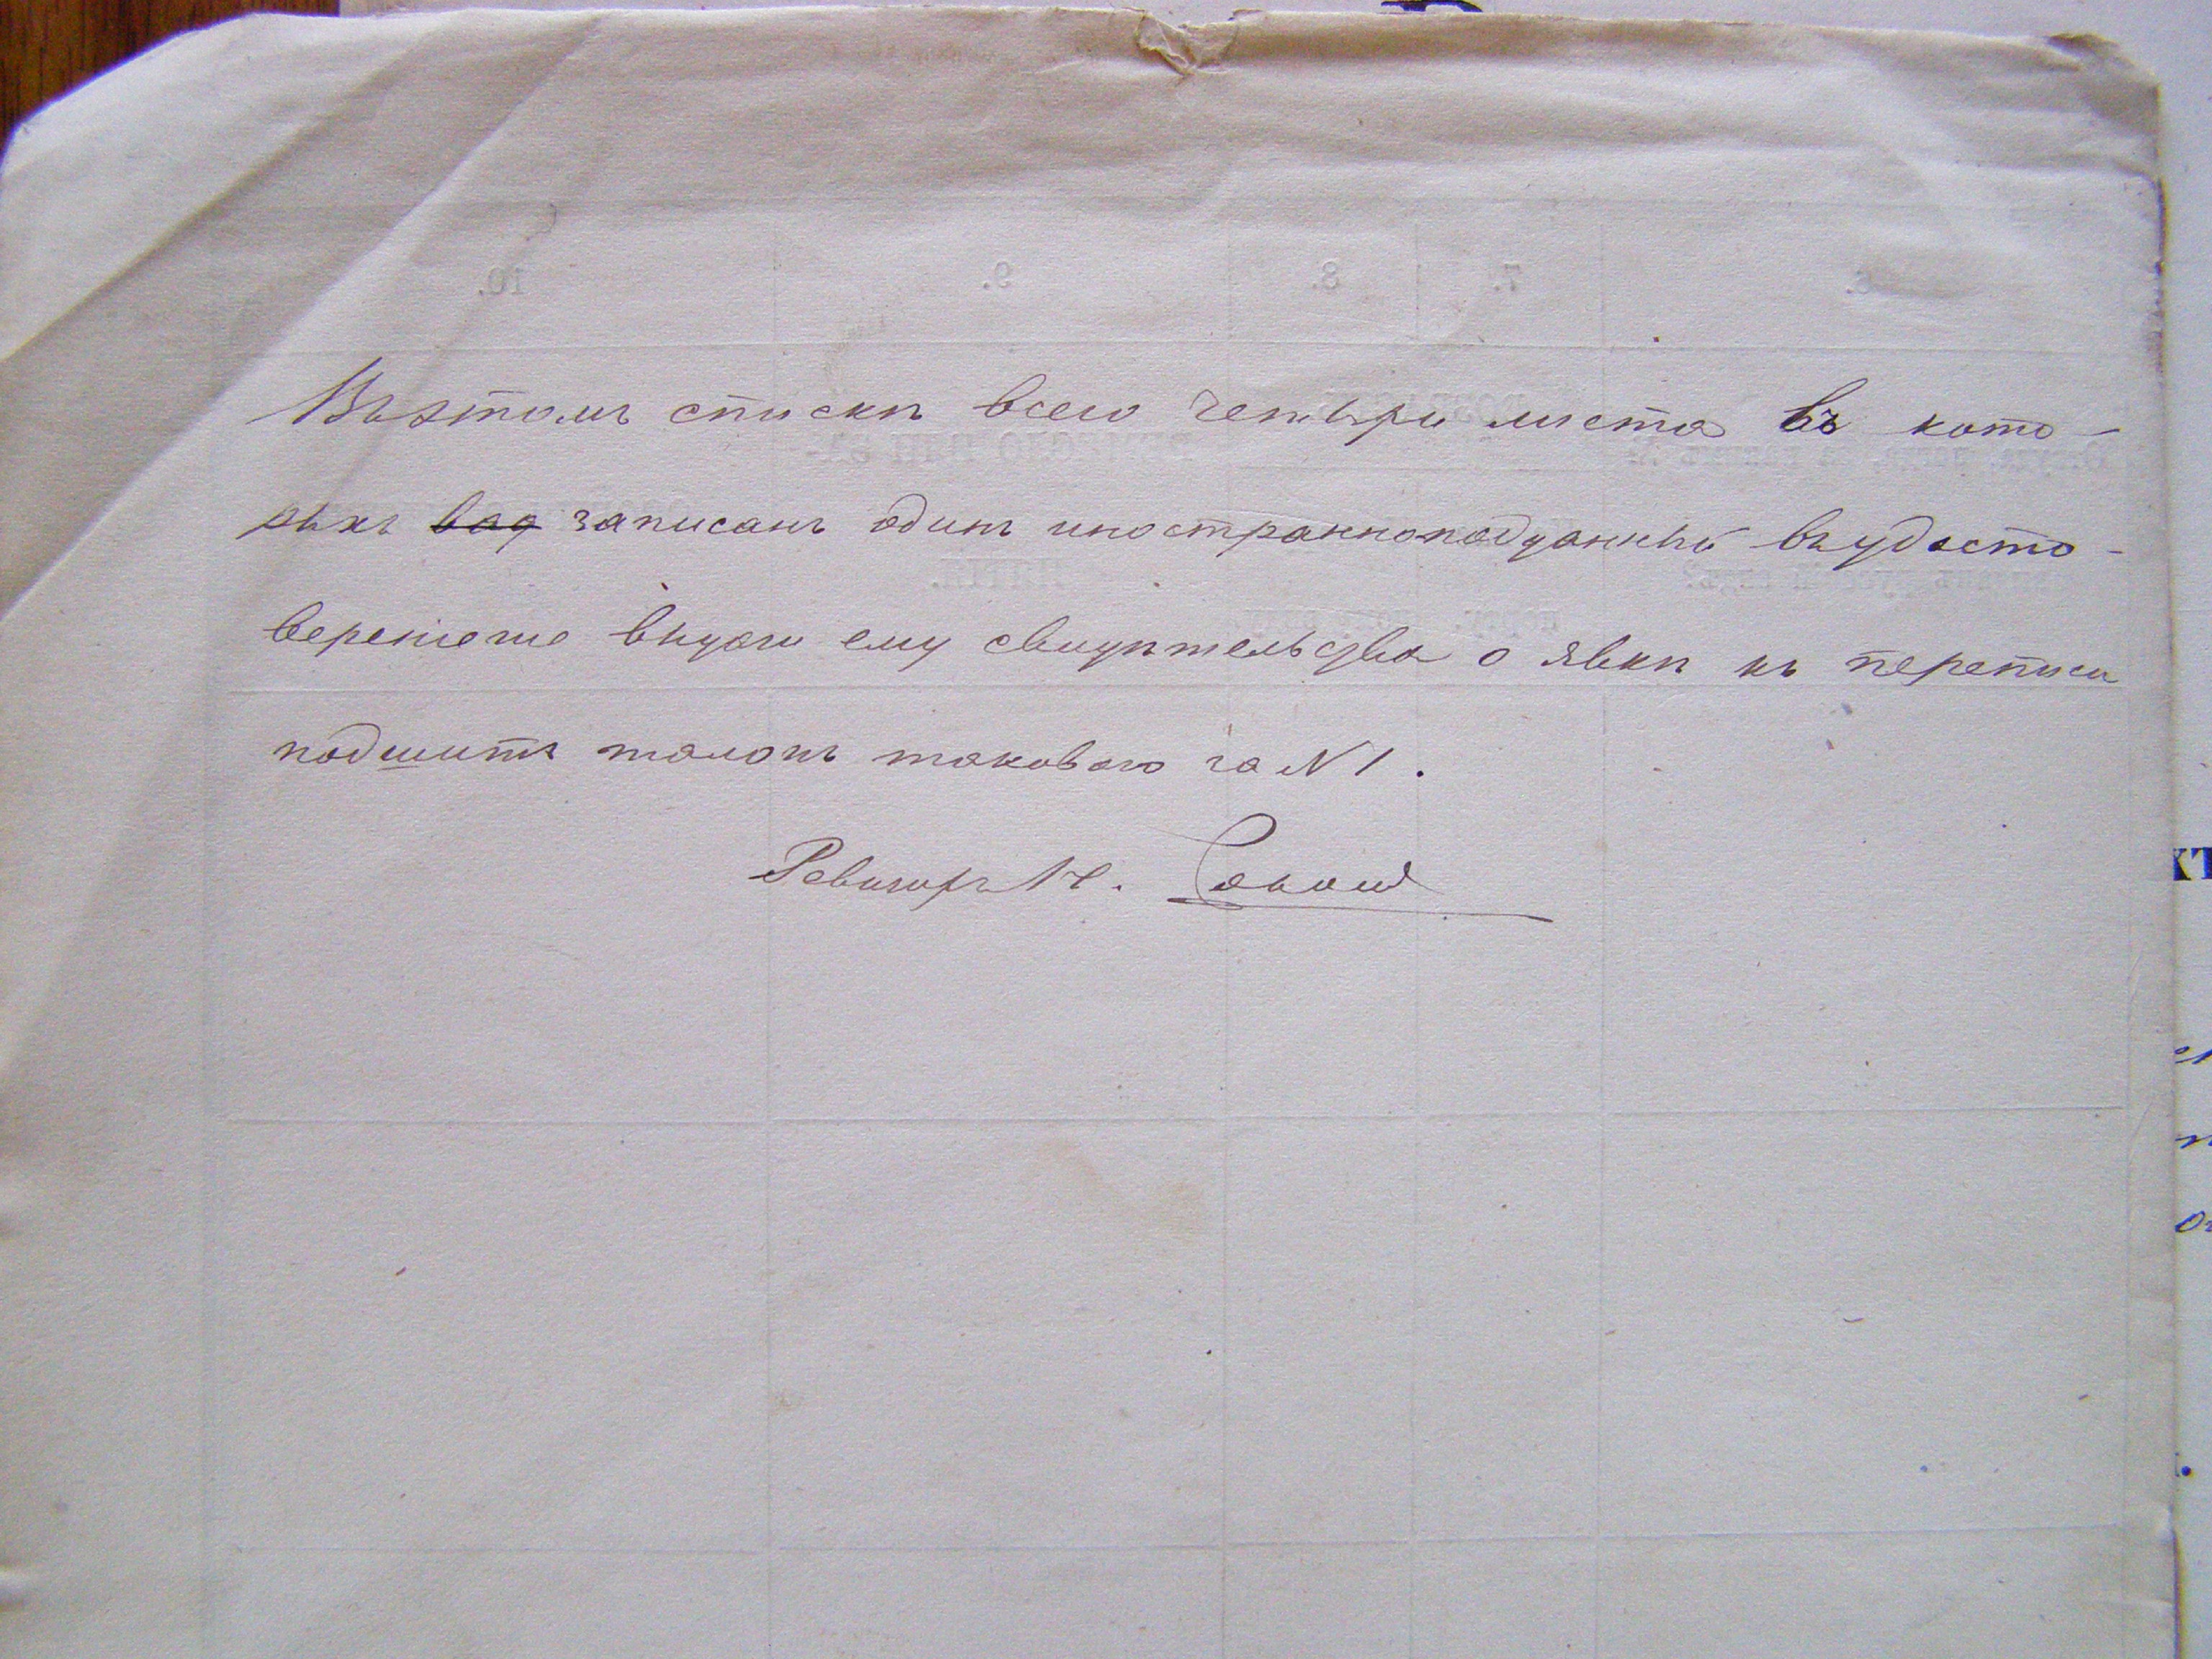 Въ этомъ спискѣ всего четыри листа въ кото-
рыхъ записанъ одинъ иностранноподданный въ удосто-
вереніе выдачи ему свидѣтельства о явкѣ къ переписи
подшитъ талонъ таковаго за №1.
Ревизоръ Н.